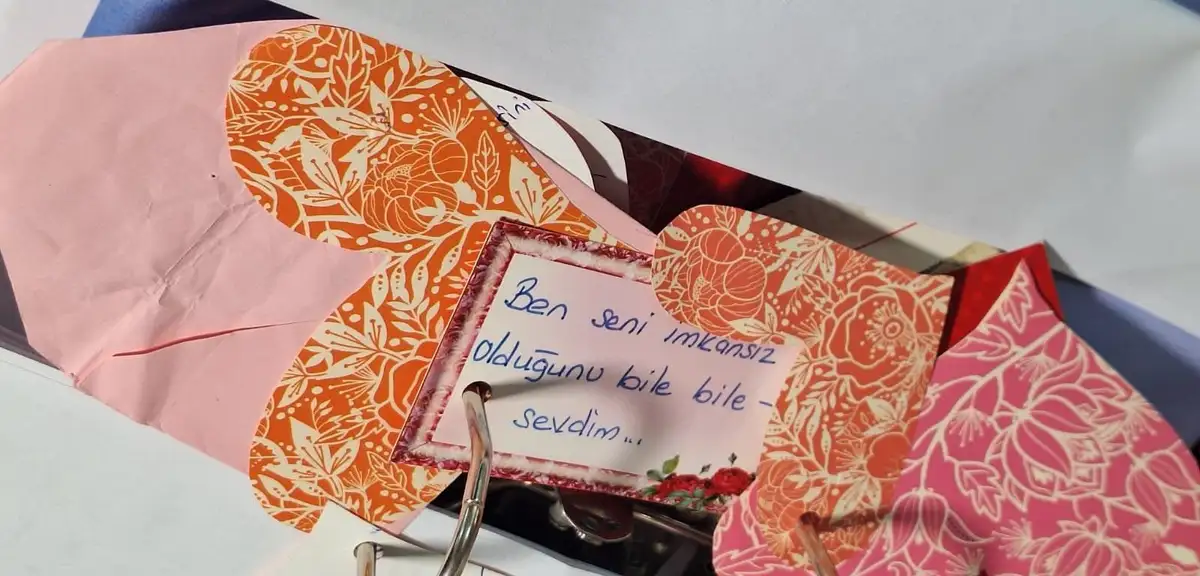 Ben seni imkansız
olduğunu bile bile -
sevdim...